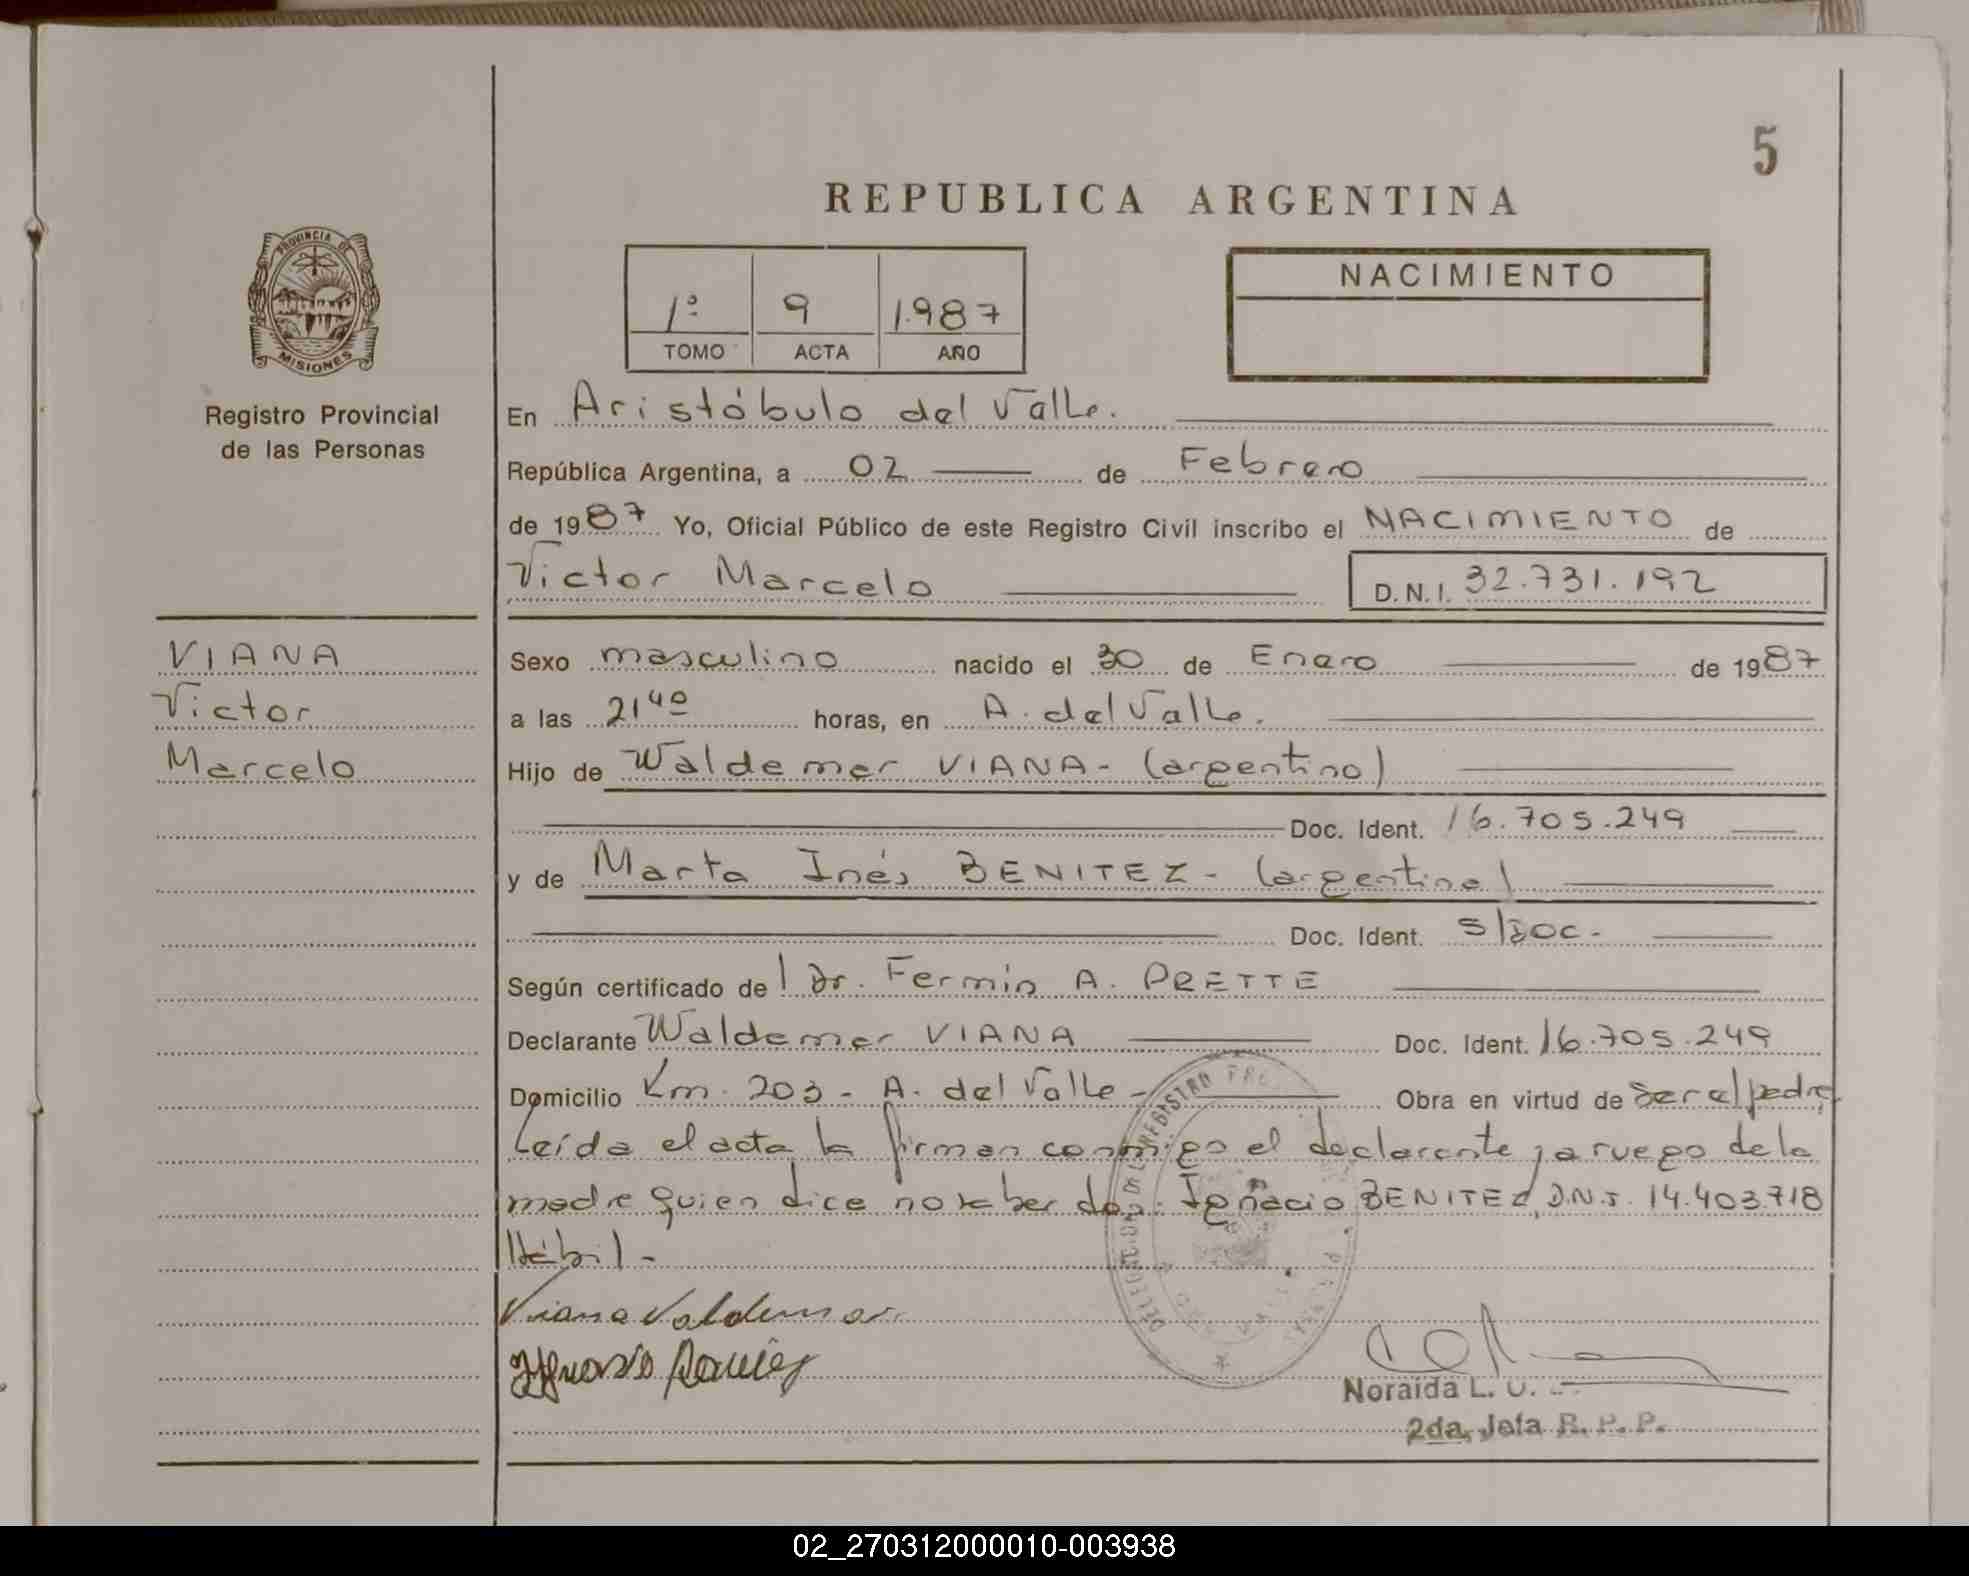 5
REPUBLICA ARGENTINA
PROVINCIA DE
MISIONES
Registro Provincial
de las Personas
1º 9 1.987
TOMO ACTA AÑO
NACIMIENTO
En Aristóbulo del Valle.
República Argentina, a 02 de Febrero
de 1987 Yo, Oficial Público de este Registro Civil inscribo el NACIMIENTO de
Victor Marcelo D.N.I. 32.731.192
VIANA
Victor
Marcelo
Sexo masculino nacido el 30 de Enero de 1987
a las 21 40 horas, en A. del Valle.
Hijo de Waldemar VIANA - (argentino)
Doc. Ident. 16.705.249
y de Marta Inés BENITEZ - (argentina)
Doc. Ident. s/doc.
Según certificado de l Dr. Fermín A. PRETTE
Declarante Waldemar VIANA Doc. Ident. 16.705.249
Domicilio Km. 203 - A. del Valle - Obra en virtud de ser el padre
Leída el acta la firman conmigo el declarante y a ruego de la
madre quien dice no saber Ignacio BENITEZ, D.N.I. 14.403.718
Hábil -
Viana Valdemar
Noraida L.
2da. Jefa R. P. P.
02_270312000010-003938